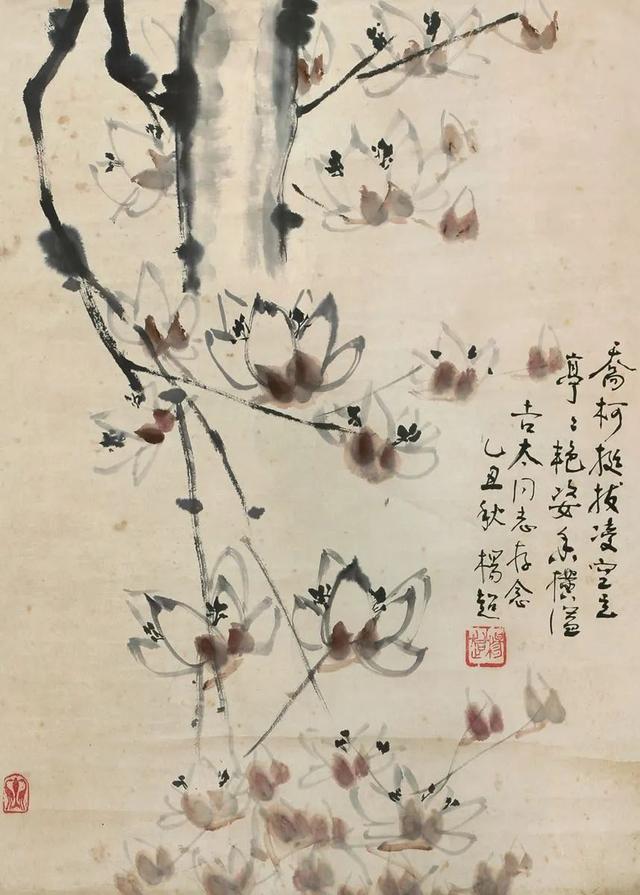 喬柯挺拔凌空立
亭〻艳姿香横溢
吉太同志存念
乙丑秋 楊超
楊超